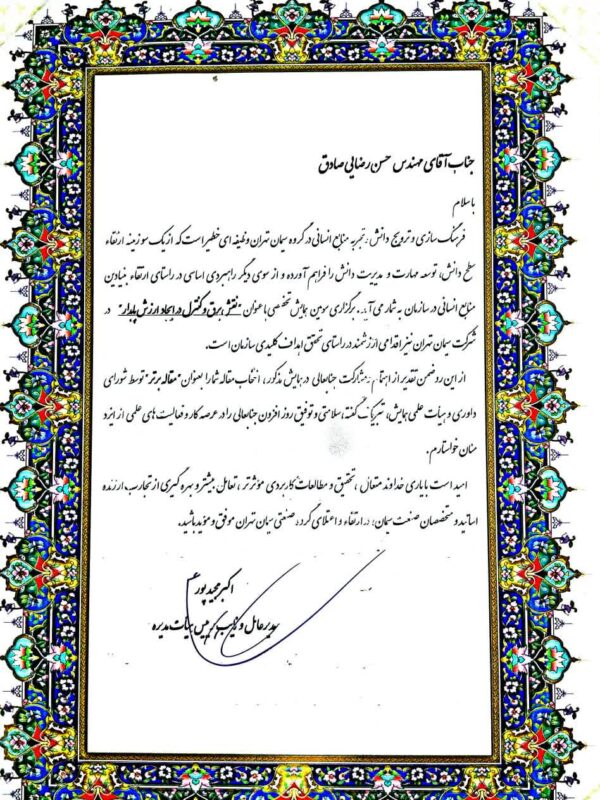 جناب آقای مهندس حسن رضایی صادق
با سلام
فرهنگ سازی و ترویج دانش، تجربه منابع انسانی در گروه سیمان تهران وظیفه ای خطیر است که از یک سو زمینه ارتقاء
سطح دانش، توسعه مهارت و مدیریت دانش را فراهم آورده و از سوی دیگر راهبردی اساسی در راستای ارتقاء بنیادین
منابع انسانی در سازمان به شمار می آید. برگزاری سومین همایش تخصصی با عنوان "نقش برق و کنترل در ایجاد ارزش پایدار" در
شرکت سیمان تهران نیز اقدامی ارزشمند در راستای تحقق اهداف کلیدی سازمان است.
از این رو ضمن تقدیر از اهتمام و مشارکت جنابعالی در همایش مذکور، انتخاب مقاله شما بعنوان "مقاله برتر" توسط شورای
داوری و هیأت علمی همایش، تبریک گفته، سلامتی و توفیق روز افزون جنابعالی را در عرصه کار و فعالیت های علمی از ایزد
منان خواستارم.
امید است با یاری خداوند متعال، تحقیق و مطالعات کاربردی مؤثرتر، تعامل بیشتر و بهره گیری از تجارب ارزنده
اساتید و متخصصان صنعت سیمان، در ارتقاء و اعتلای گروه صنعتی سیمان تهران موفق و مؤید باشید.
اکبر مجیدپور
مدیر عامل و نایب رئیس هیأت مدیره